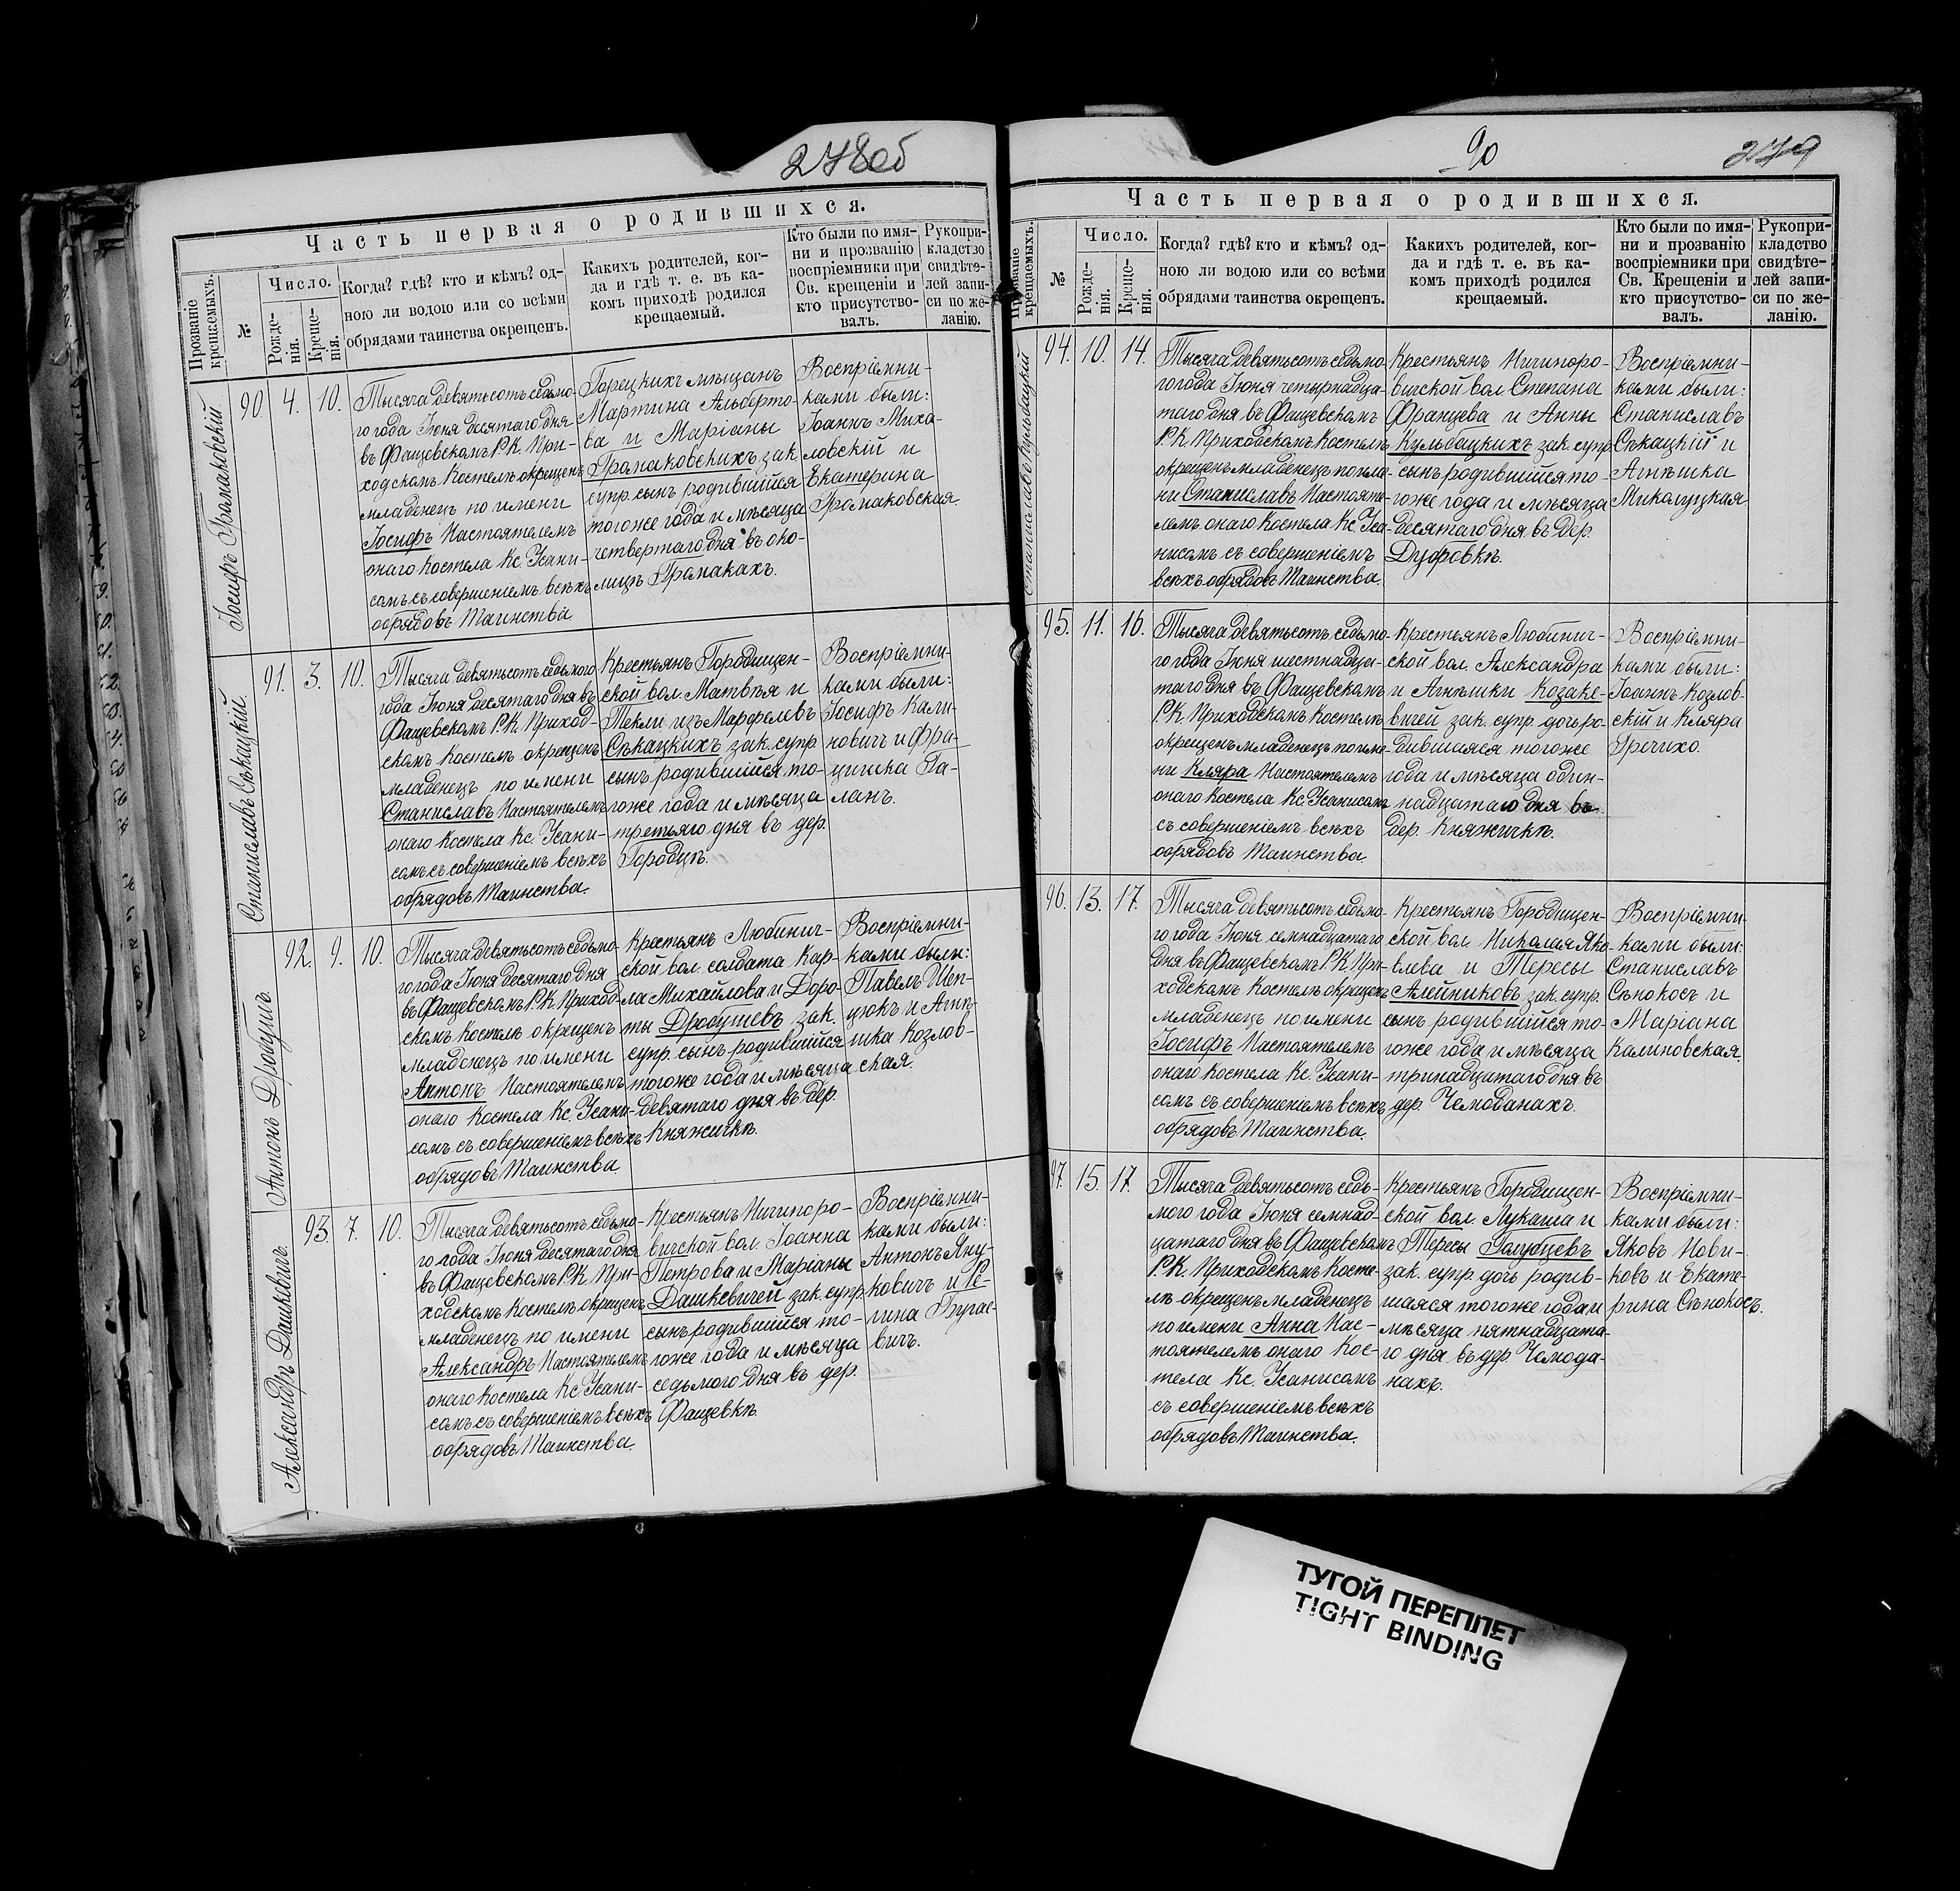 278об
Часть первая о родившихся.
Прозваніе крещаемыхъ.
№
Число.
Рожде-
нія.
Креще-
нія.
Когда? гдѣ? кто и кѣмъ? од-
ною ли водою или со всѣми
обрядами таинства окрещенъ.
Какихъ родителей, ког-
да и гдѣ т. е. въ ка-
комъ приходѣ родился
крещаемый.
Кто были по имя-
ни и прозванію
воспріемники при
Св. крещеніи и
кто присутство-
валъ.
Рукопри-
кладство
свидѣте-
лей запи-
си по же-
ланію.
Іосифъ Громаковскій
90. 4. 10.
Тысяча девятьсотъ седьмо-
го года Іюня десятаго дня
въ Фащевскомъ Р.К. При-
ходскомъ Костелѣ окрещенъ
младенецъ по имени
Іосифъ Настоятелемъ
онаго Костела Кс. Усани-
сомъ съ совершеніемъ всѣхъ
обрядовъ Таинства
Горецкихъ мѣщанъ
Мартина Альберто-
ва и Маріаны
Громаковскихъ зак.
супр. сынъ родившійся
того же года и мѣсяца
четвертаго дня въ око-
лицѣ Громакахъ.
Воспріемни-
ками были:
Іоаннъ Миха-
ловскій и
Екатерина
Громаковская.
Станиславъ Сѣкацкій.
91. 3. 10.
Тысяча девятьсотъ седьмого
года Іюня десятаго дня въ
Фащевскомъ Р.К. Приход-
скомъ Костелѣ окрещенъ
младенецъ по имени
Станиславъ Настоятелемъ
онаго Костела Кс. Усани-
сомъ съ совершеніемъ всѣхъ
обрядовъ Таинства.
Крестьянъ Городищен-
ской вол. Матвѣя и
Текли изъ Мерфелевъ
Сѣкацкихъ зак. супр.
сынъ родившійся то-
гоже года и мѣсяца
третьяго дня въ дер.
Городцѣ.
Воспріемни-
ками были:
Іосифъ Кали-
новичъ и Фра-
циска Га-
ланъ.
Антонъ Дробушъ.
92. 9. 10.
Тысяча девятьсотъ седьмо-
го года Іюня десятаго дня
въ Фащевскомъ Р.К. Приход-
скомъ Костелѣ окрещенъ
младенецъ по имени
Антонъ Настоятелемъ
онаго Костела Кс. Усани-
сомъ съ совершеніемъ всѣхъ
обрядовъ Таинства
Крестьянъ Любинич-
ской вол. солдата Кар-
ла Михайлова и Доро-
ты Дробушевъ зак.
супр. сынъ родившійся
тогоже года и мѣсяца
девятаго дня въ дер.
Княжичкѣ.
Воспріемни-
ками были:
Павелъ Шеп-
цюкъ и Агнѣ-
шка Козлов-
ская.
Александръ Дашкевичъ.
93. 7. 10.
Тысяча девятьсотъ седьмо-
го года Іюня десятаго дня
въ Фащевскомъ Р.К. При-
ходскомъ Костелѣ окрещенъ
младенецъ по имени
Александръ Настоятелемъ
онаго Костела Кс. Усани-
сомъ съ совершеніемъ всѣхъ
обрядовъ Таинства.
Крестьянъ Ничипоро-
вичской вол. Іоанна
Петрова и Маріаны
Дашкевичей зак. супр.
сынъ родившійся то-
гоже года и мѣсяца
седьмого дня въ дер.
Фащевкѣ.
Воспріемни-
ками были:
Антонъ Яну-
ковичъ и Ге-
лина Бугае-
вичъ.
90
279
Часть первая о родившихся.
Прозваніе крещаемыхъ.
№
Число.
Рожде-
нія.
Креще-
нія.
Когда? гдѣ? кто и кѣмъ? од-
ною ли водою или со всѣми
обрядами таинства окрещенъ.
Какихъ родителей, ког-
да и гдѣ т. е. въ ка-
комъ приходѣ родился
крещаемый.
Кто были по имя-
ни и прозванію
воспріемники при
Св. Крещеніи и
кто присутство-
валъ.
Рукопри-
кладство
свидѣте-
лей запи-
си по же-
ланію.
Станиславъ Кульбацкій
94. 10. 14.
Тысяча девятьсотъ седьмо-
го года Іюня четырнадца-
таго дня въ Фащевскомъ
Р.К. Приходскомъ Костелѣ
окрещенъ младенецъ по име-
ни Станиславъ Настояте-
лемъ онаго Костела Кс. Уса-
нисомъ съ совершеніемъ
всѣхъ обрядовъ Таинства.
Крестьянъ Ничипоро-
вичской вол. Степана
Францева и Анны
Кульбацкихъ зак. супр.
сынъ родившійся то-
гоже года и мѣсяца
десятаго дня въ дер.
Дубровкѣ.
Воспріемни-
ками были:
Станиславъ
Сѣкацкій и
Агнѣшка
Миколуцкая
95. 11. 16.
Тысяча девятьсотъ седьмо-
го года Іюня шестнадца-
таго дня въ Фащевскомъ
Р.К. Приходскомъ Костелѣ
окрещенъ младенецъ по име-
ни Кляра Настоятелемъ
онаго Костела Кс. Усанисомъ
съ совершеніемъ всѣхъ
обрядовъ Таинства.
Крестьянъ Любинич-
ской вол. Александра
и Агнѣшки Козаке-
вичей зак. супр. дочь ро-
дившаяся тогоже
года и мѣсяца один-
надцатаго дня въ
дер. Княжичкѣ.
Воспріемни-
ками были:
Іоаннъ Козлов-
скій и Кляра
Грочихо.
96. 13. 17.
Тысяча девятьсотъ седьмо-
го года Іюня семнадцатаго
дня въ Фащевскомъ Р.К. При-
ходскомъ Костелѣ окрещенъ
младенецъ по имени
Іосифъ Настоятелемъ
онаго Костела Кс. Усани-
сомъ съ совершеніемъ всѣхъ
обрядовъ Таинства.
Крестьянъ Городищен-
ской вол. Николая Яко-
влева и Тересы
Алейниковъ зак. супр.
сынъ родившійся то-
гоже года и мѣсяца
тринадцатаго дня въ
дер. Чемоданахъ.
Воспріемни-
ками были:
Станиславъ
Сѣнокосъ и
Маріана
Калиновская.
97. 15. 17.
Тысяча девятьсотъ седь-
мого года Іюня семнад-
цатаго дня въ Фащевскомъ
Р.К. Приходскомъ Косте-
лѣ окрещенъ младенецъ
по имени Анна Нас-
тоятелемъ онаго Кос-
тела Кс. Усанисомъ
съ совершеніемъ всѣхъ
обрядовъ Таинства.
Крестьянъ Городищен-
ской вол. Лукаша и
Тересы Голубцевъ
зак. супр. дочь родив-
шаяся тогоже года и
мѣсяца пятнадцата-
го дня въ дер. Чемода-
нахъ.
Воспріемни-
ками были:
Яковъ Нови-
ковъ и Екате-
рина Сѣнокосъ.
ТУГОЙ ПЕРЕПЛЕТ
TIGHT BINDING